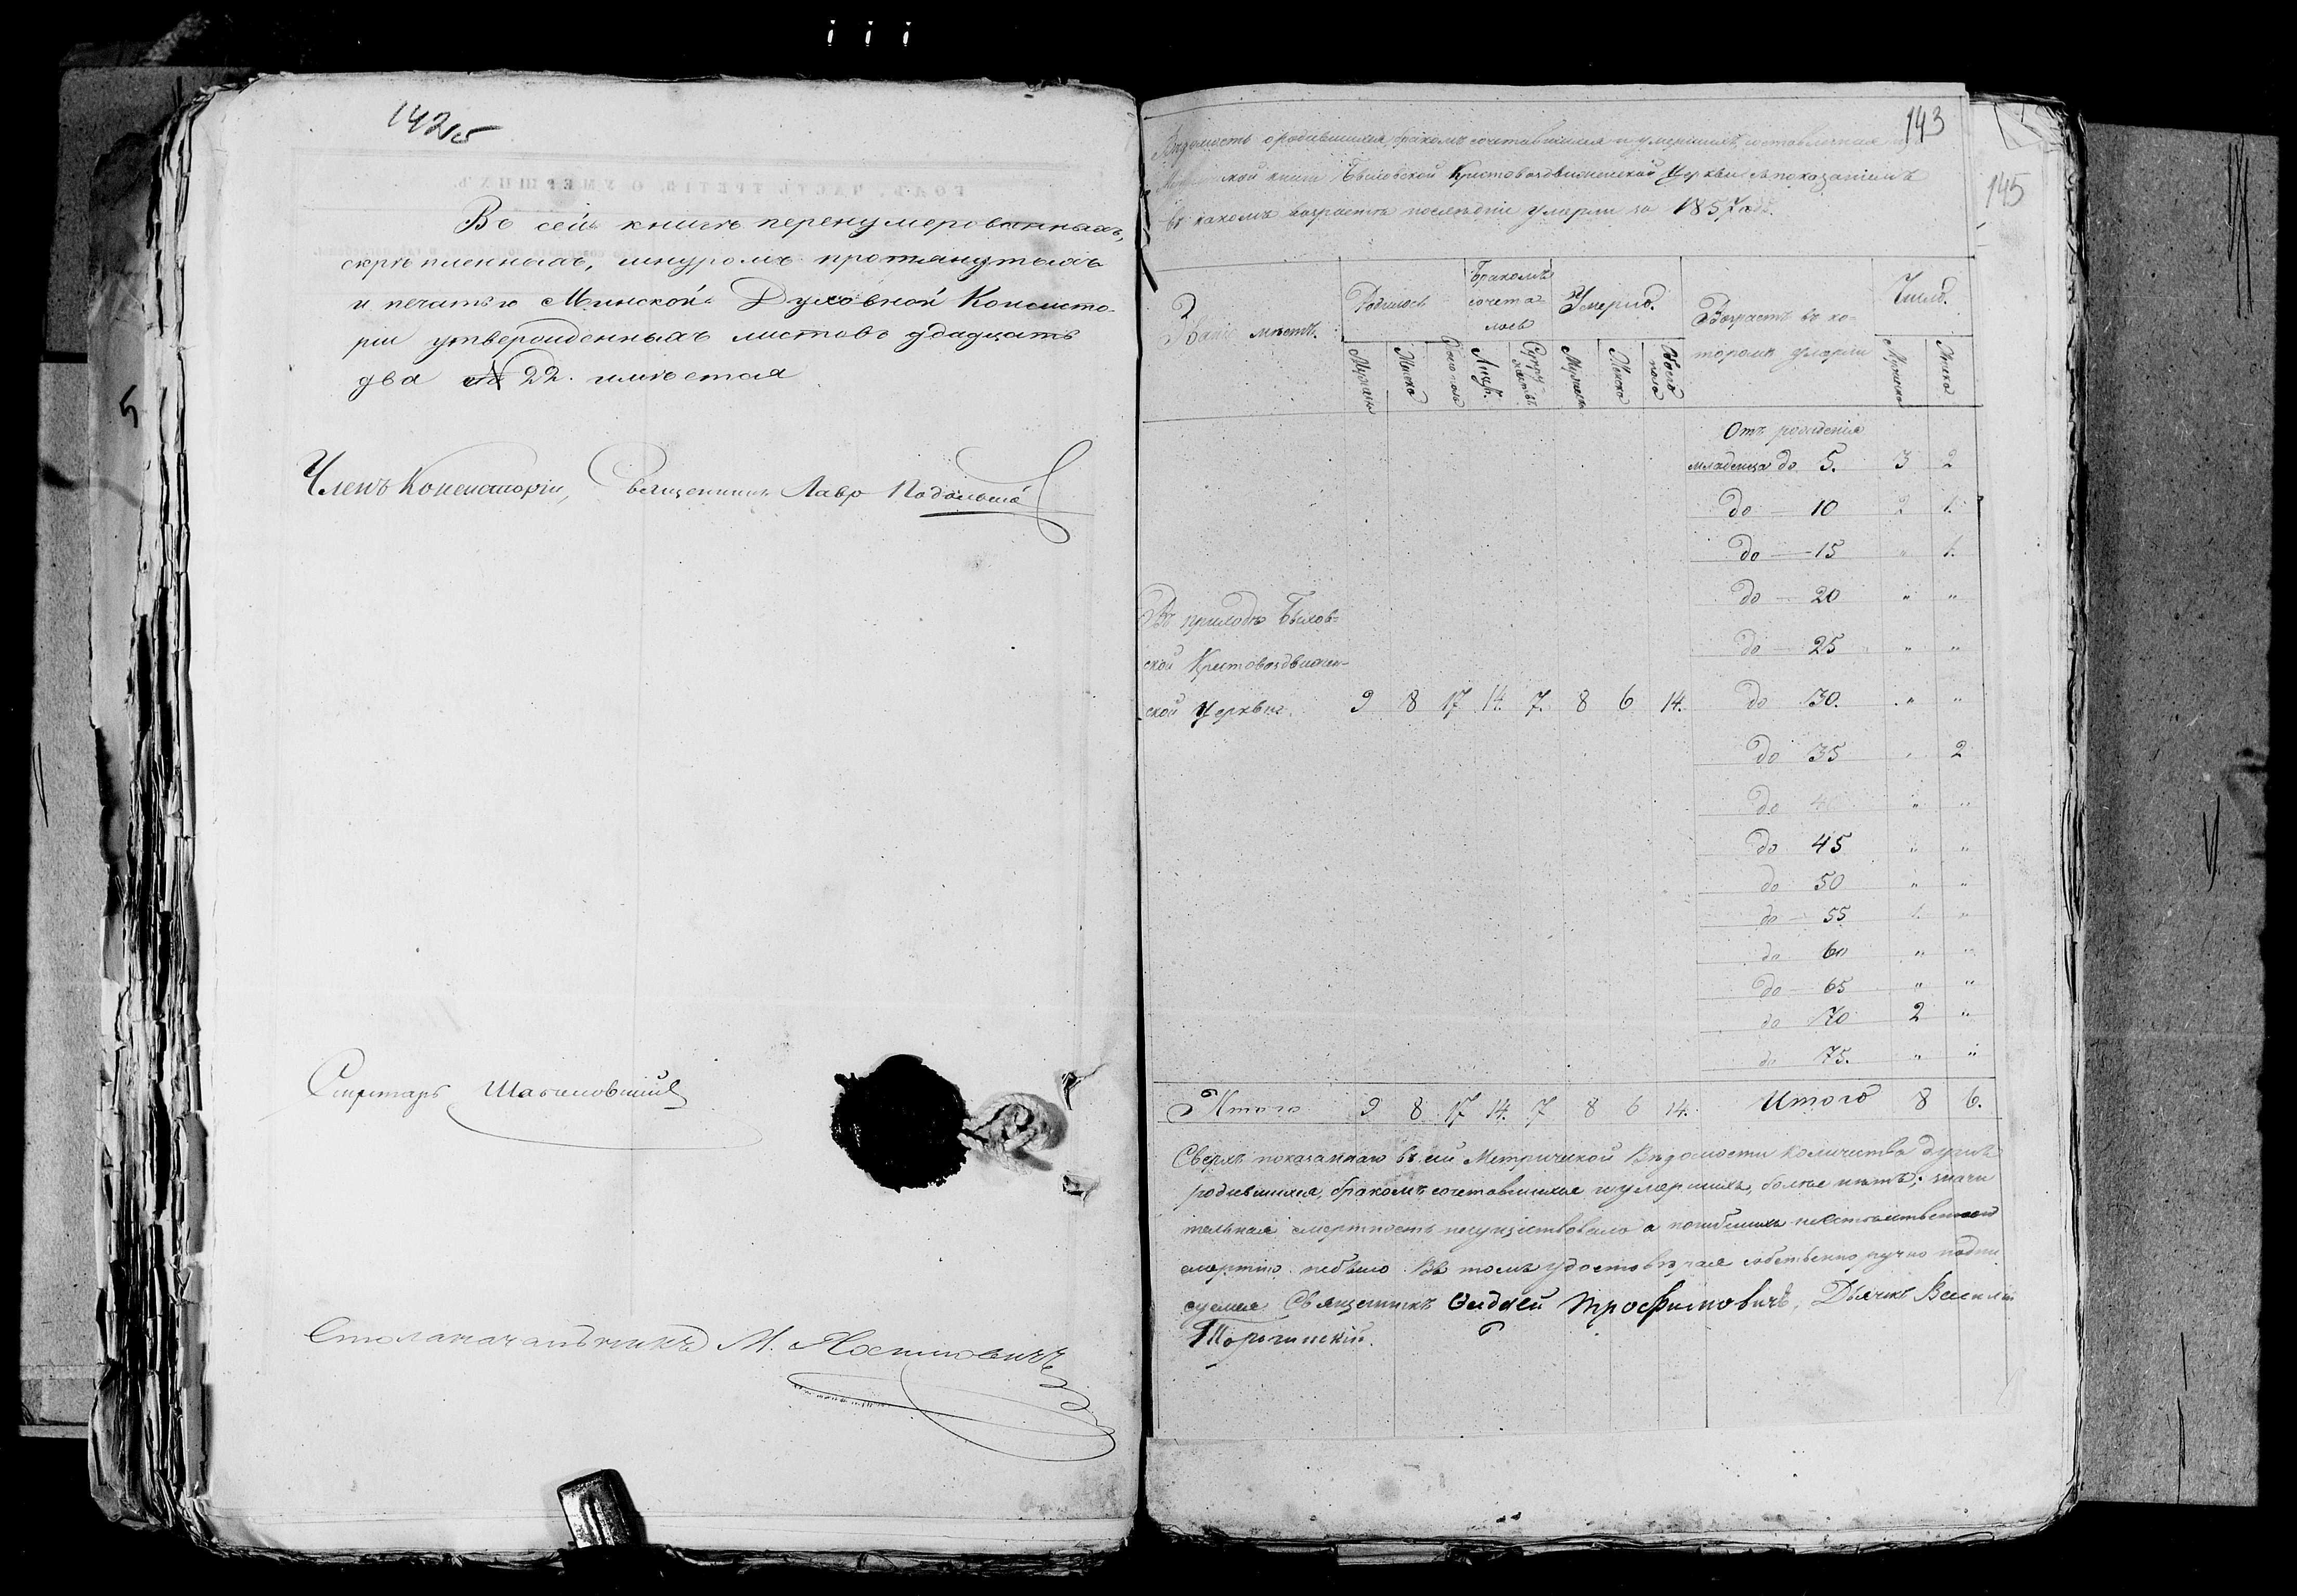 142об
Въ сей книгѣ перенумерованныхъ,
скрѣпленныхъ, шнуромъ протянутыхъ
и печатью Минской Духовной Консисто-
ріи утвержденныхъ листовъ двадцать
два № 22. имѣется
Членъ Консисторіи, Священникъ Лавръ
Секретарь
Столоначальникъ М.
143
145
Вѣдомость о родившихся, бракомъ сочетавшихся и умершихъ, составленная
книги Быховской Крестовоздвиженской Церкви съ показаніемъ
въ какомъ возрастѣ послѣдніе умерли за 1857 годъ.
Званіе мѣстъ.
Родилось
Бракомъ сочеталось
Умерло.
Возрастъ въ которомъ умерли
Число.
Мужеска
Женска
Обоего пола
Лицъ.
Супружествъ
Мужеска
Женска
Обоего пола
Мужеска
Женска
Отъ рожденія
младенца до 5. 3 2
до 10 2 1.
до 15 " 1.
до 20 " "
до 25 " "
до 30. " "
до 35 " 2
до 40 " "
до 45 " "
до 50 " "
до 55 1. "
до 60 " "
до 65 " "
до 70 2 "
до 75. " "
Въ приходѣ Быхов-
ской Крестовоздвижен-
ской Церкви. 9 8 17 14. 7. 8 6 14.
Итого 9 8 17 14. 7 8 6 14. Итого 8 6.
Сверхъ показаннаго въ сей Метрической Вѣдомости количества душъ
родившихся, бракомъ сочетавшихся и умершихъ, болѣе нѣтъ; значи
тельная смертность не существовала а погибшихъ неестественной
смертію небыло. Въ томъ удостовѣряя собственно ручно подпи
суемся Священникъ Трофимовичъ, Дьячкъ Василій